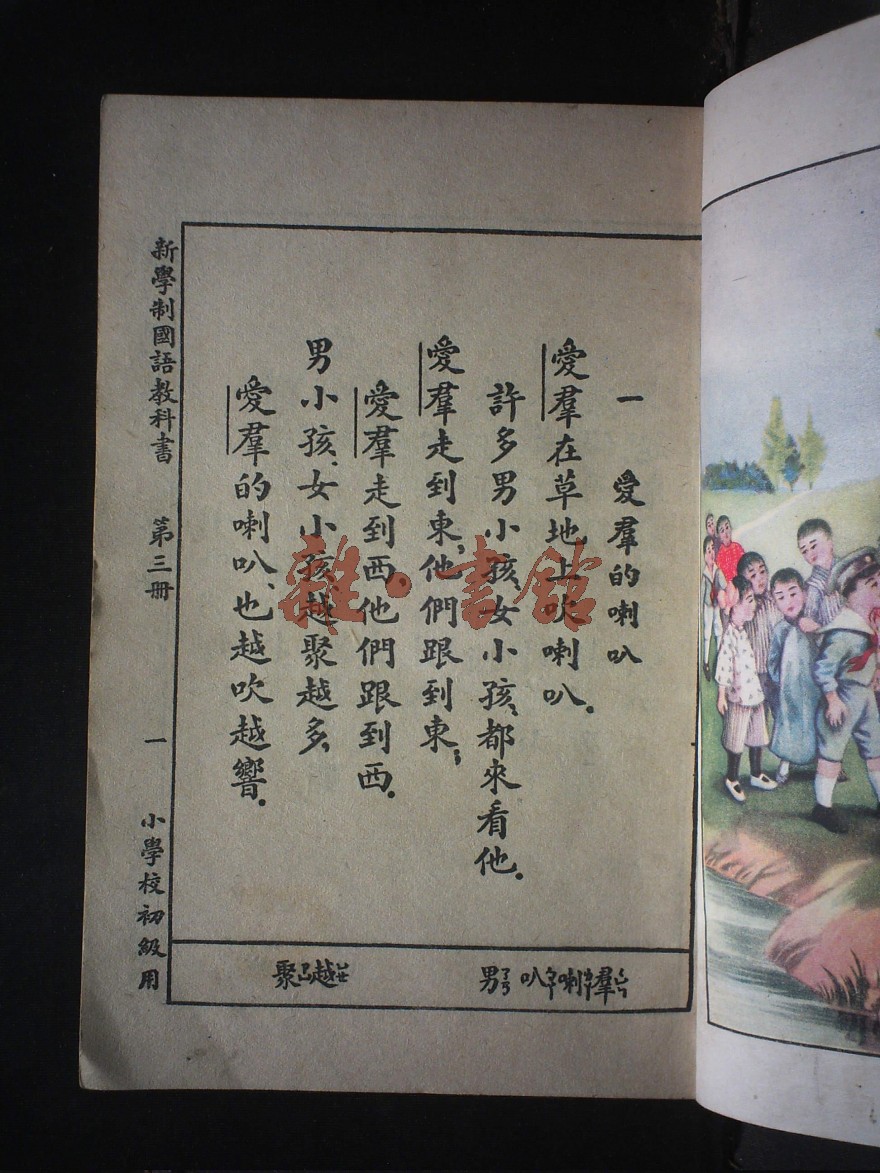 一 愛羣的喇叭
愛羣在草地上吹喇叭.
許多男小孩,女小孩,都來看他.
愛羣走到東,他們跟到東;
愛羣走到西,他們跟到西.
男小孩,女小孩越聚越多,
愛羣的喇叭,也越吹越響.
羣 喇 叭 男
越 聚
新學制國語教科書 第三冊 一 小學校初級用
雜·書館